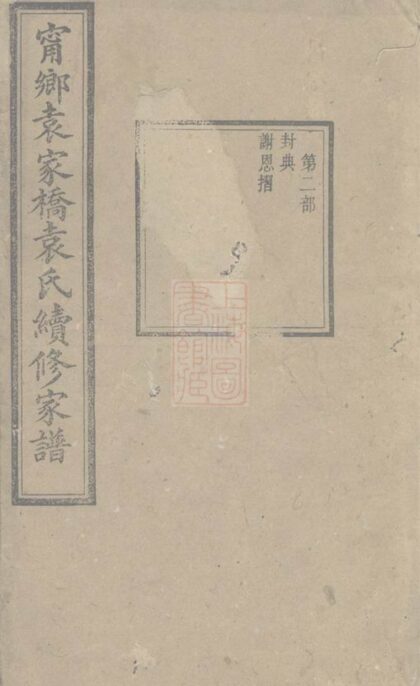 甯鄉袁家橋袁氏續修家譜
第二部
封典
謝恩摺
上海圖書館藏